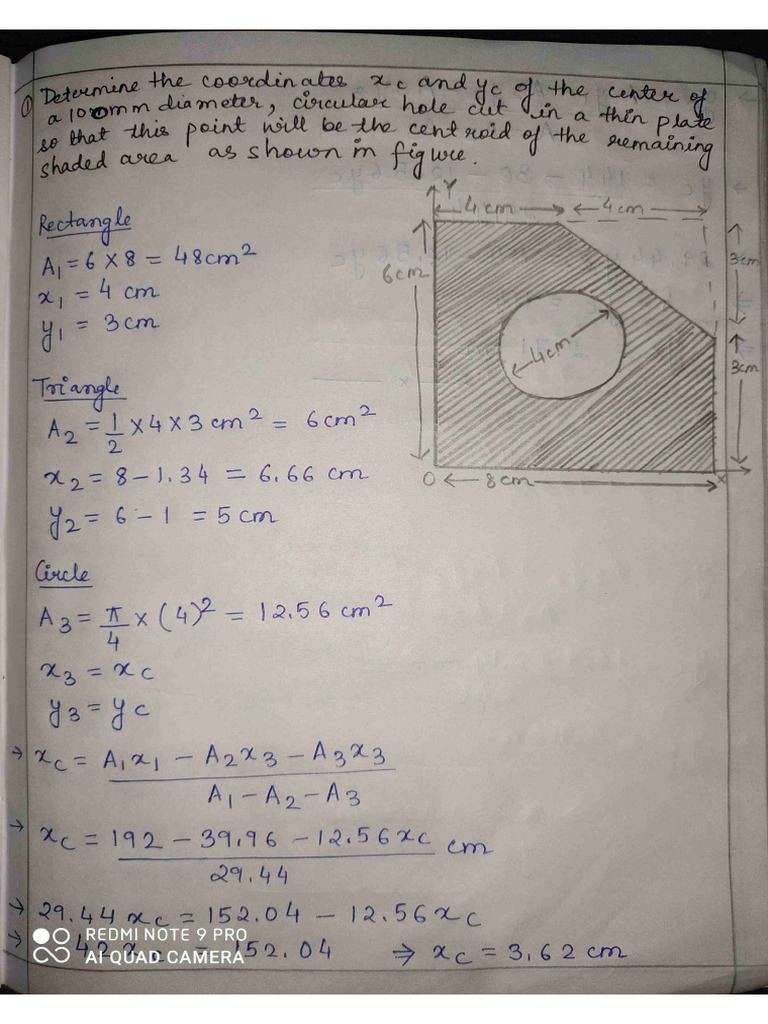 ① Determine the coordinates xc and yc of the center of
a 100mm diameter, circular hole cut in a thin plate
so that this point will be the centroid of the remaining
shaded area as shown in figure.
Rectangle
A₁ = 6 × 8 = 48cm²
x₁ = 4 cm
y₁ = 3cm
Y
4 cm
4cm
6cm
3cm
4cm
3cm
O
8cm
X
Triangle
A₂ = 1/2 × 4 × 3 cm² = 6cm²
x₂ = 8 - 1.34 = 6.66 cm
y₂ = 6 - 1 = 5 cm
Circle
A₃ = π/4 × (4)² = 12.56 cm²
x₃ = xc
y₃ = yc
→ xc = A₁x₁ - A₂x₃ - A₃x₃ / A₁ - A₂ - A₃
→ xc = 192 - 39.96 - 12.56xc / 29.44 cm
→ 29.44 xc = 152.04 - 12.56xc
→ 42 xc = 152.04 ⇒ xc = 3.62 cm
REDMI NOTE 9 PRO
AI QUAD CAMERA